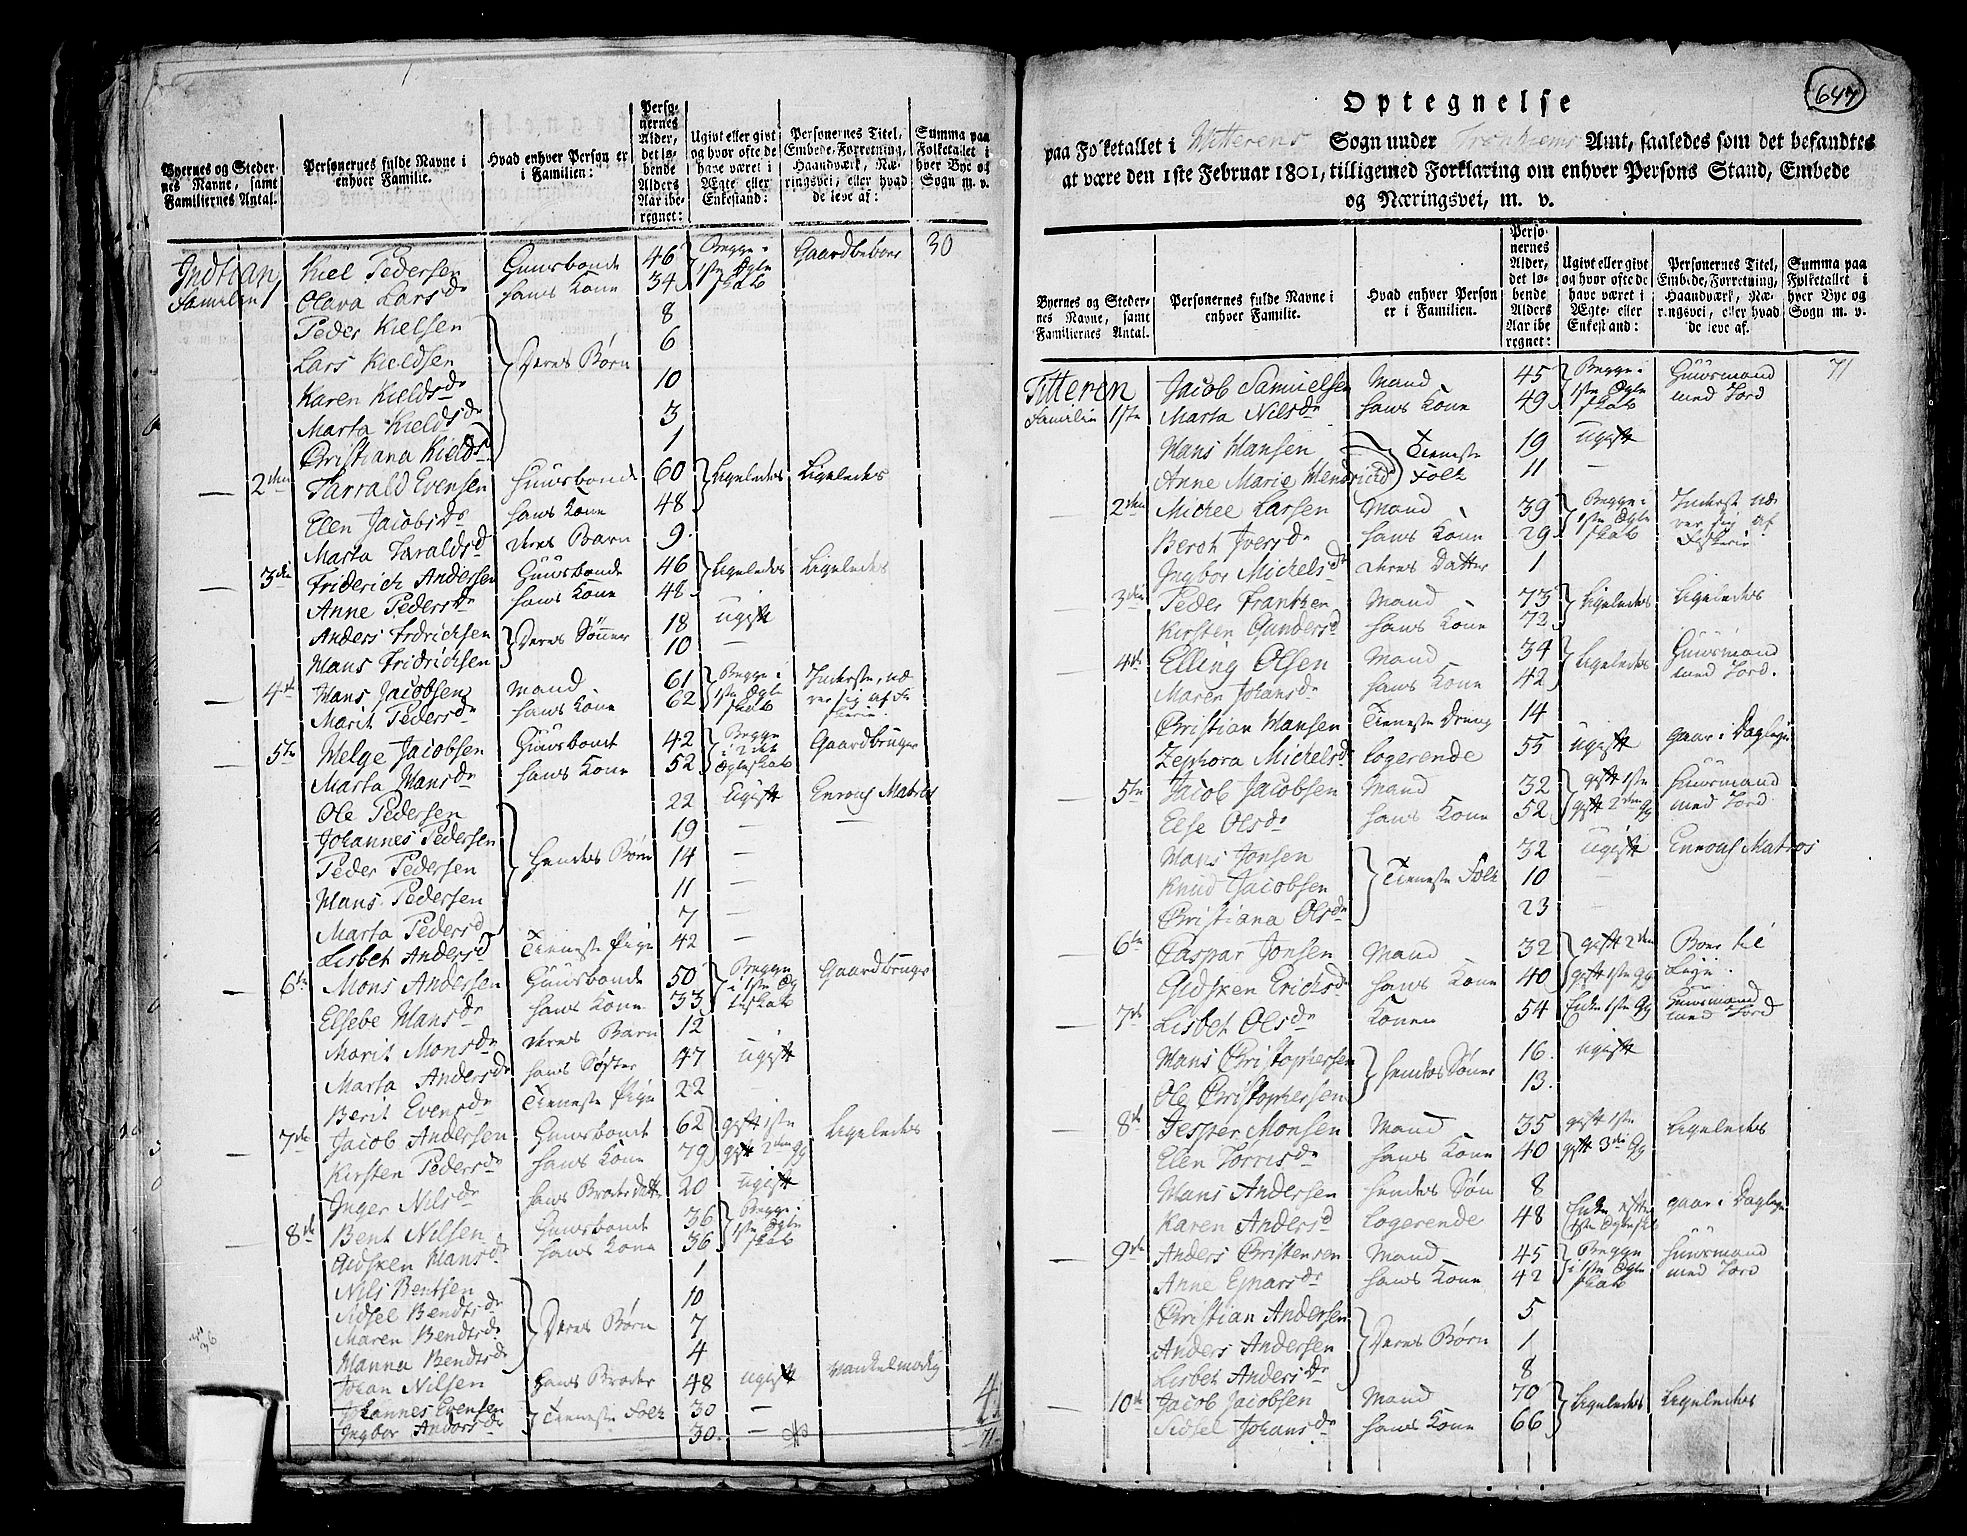 Byernes og Steder-
nes Navne, samt
Familiernes Antal.
Personernes fulde Navne i
enhver Familie.
Hvad enhver Person er
i Familien:
Perso-
nernes
Alder,
det lø-
bende
Alders
Aar ibe-
regnet:
Ugivt eller givt
og hvor ofte de
have været i
Ægte- eller
Enkestand:
Personernes Titel,
Embede, Forretning,
Haandværk, Næ-
ringsvei, eller hvad
de leve af:
Summa paa
Folketallet i
hver Bye og
Sogn m. v.
Indtian Kiel Pedersen Huusbonde 46 Begge i Gaardbeboer 30
Familie 1 Olava Larsdr hans Kone 34 1ste Egte skab
Peder Kielsen 8
Lars Kieldsen Deres Børn 6
Karen Kieldsdr 10
Marta Kieldsdr 3
Christiana Kieldsd 1
2den Tarrald Evensen Huusbonde 60 Ligeledes Ligeledes
Elen Jacobsdr hans Kone 48
Marta Taraldsd deres Barn 9
3die Friderich Andersen Huusbonde 46 Ligeledes Ligeledes
Anne Pedersdr hans Kone 48
Anders Fridrichsen Deres Sönner 18 ugift
Hans Fridrichsen 10 —
4de Hans Jacobsen Mand 61 Begge i Inderste, næ
Marit Pedersdr hans Kone 62 1ste Egte skab rer sig af Fi skerie
5te Helge Jacobsen Huusbond 42 Begge Gaardbruger
Marta Hansdr hans Kone 52 i 2det Egteskab
Ole Pedersen 22 Ugift Enroul Matros
Johannes Pedersen 19 — —
Peder Pedersen Hendes Børn 14 —
Hans Pedersen 11 —
Marta Pedersd 7 —
Lisbet Andersd Tieneste Pige 42 —
6te Mons Andersen Huusbonde 50 Begge Gaardbruger
Elsebe Hansdr hans Kone 33 i 1ste Eg teskab
Marit Monsdr deres Barn 12
Marta Andersdr hans Søster 47 ugift
Berit Evensdr Tieneste Pige 22
7de Jacob Andersen Huusbond 62 gift 1ste Ligeledes
Kirsten Pedersdr hans Kone 79 gift 2den Gg
Inger Nilsdr hans Broder Datter 20 ugift
8de Bent Nilsen Huusbond 36 Begge i
Gidsken Hansdr hans Kone 36 1ste Egte skab
Nils Bentsen 1
Sidsel Bendtsdr Deres Børn 10
Maren Bendtsdr 7
Hanna Bendtsdr 4
Johan Nilsen hans Broder 48 ugift Vankelmodig
Johannes Evensen Tieneste Folk 30 —
Ingbor Andersdr 30 —
71
647
Optegnelse
paa Folketallet i Hitterens Sogn under Tronhiems Amt, saaledes som det befandtes
at være den 1ste Februar 1801, tilligemed Forklaring om enhver Persons Stand, Embede
og Næringsvei, m. v.
Byernes og Steder-
nes Navne, samt
Familiernes Antal.
Personernes fulde Navne i
enhver Familie.
Hvad enhver Person
er i Familien.
Perso-
nernes
Alder,
det lø-
bende
Alders
Aar ibe
regnet:
Ugivt eller givt
og hvor ofte de
have været i
Ægte- eller
Enkestand:
Personernes Titel,
Embede, Forretning,
Haandværk, Næ-
ringsvei, eller hvad
de leve af.
Summa paa
Folketallet i
hver Bye og
Sogn m. v.
Titteren Jacob Samuelsen Mand 45 Begge i Huusmand 71
Familie 1ste Marta Nilsdr hans Kone 49 1ste Egte skab med Jord
Hans Hansen Tieneste 19 ugift
Anne Marie Hendrichd Folk 11 —
2den Michel Larsen Mand 39 Begge i Inderste næ
Beroh Iversdr hans Kone 29 1ste Egte skab rer sig af Fiskerie
Ingbor Michelsdr deres Datter 1
3die Peder Frantzen Mand 73 Ligeledes Ligeledes
Kirsten Gundersd hans Kone 72
4de Elling Olsen Mand 34 Ligeledes Huusmand
Maren Johansdr hans Kone 42 med Jord.
Christian Hansen Tieneste Dreng 14
Zephora Michelsdr Logerende 55 ugift gaar i Dagleye
5te Jacob Jacobsen Mand 32 gift 1ste Huusmand
Else Olsdr hans Kone 52 gift 2den Gg med Jord
Hans Jonsen 32 ugift Enroul Matros
Knud Jacobsen Tieneste Folk 10 —
Christiana Olsdr 23 —
6te Caspar Jonsen Mand 32 gift 2den Boer til
Gidsken Erichsdr hans Kone 40 gift 1ste Gg Leye.
7de Lisbet Olsdr Konen 54 Enke 1ste Gg Huusmand med Jord
Hans Christophersen hendes Söner 16 ugift
Ole Christophersen 13
8de Jesper Monsen Mand 35 gift 1ste Ligeledes
Elen Torrisdr hans Kone 40 gift 3die Gg
Hans Andersen hendes Søn 8
Karen Andersd Logerende 48 Enke efter 1ste Egteskab gaar i Dagleye
9de Anders Christensen Mand 45 Begge Huusmand
Anne Ejnarsdr hans Kone 42 i 1ste Egte skab med Jord
Christian Andersen 5
Anders Andersen Deres Børn 1
Lisbet Andersdr 8
10de Jacob Jacobsen Mand 70 Ligeledes Ligeledes
Sidsel Johansdr hans Kone 66